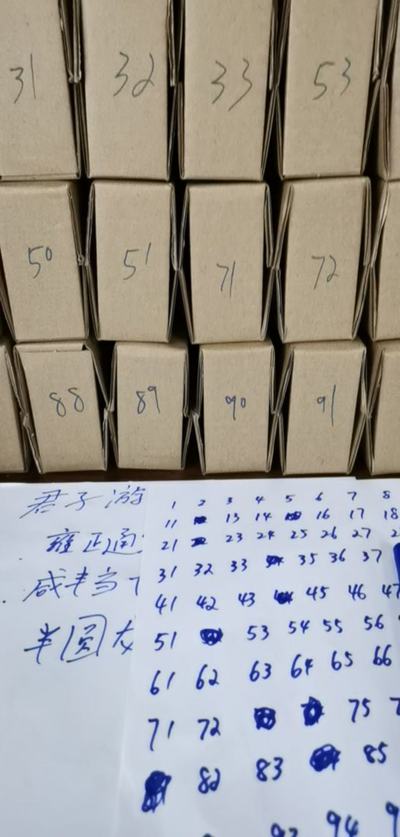 31 32 33 53
50 51 71 72
88 89 90 91
君子游
雍正通
咸丰当
半圆
1 2 3 4 5 6 7 8
11 13 14 16 17 18
21 23 24 25 26 27 2
31 32 33 35 36 37
41 42 43 45 46 47
51 53 54 55 56
61 62 63 64 65 66
71 72 75 7
82 83 85
93 94 9